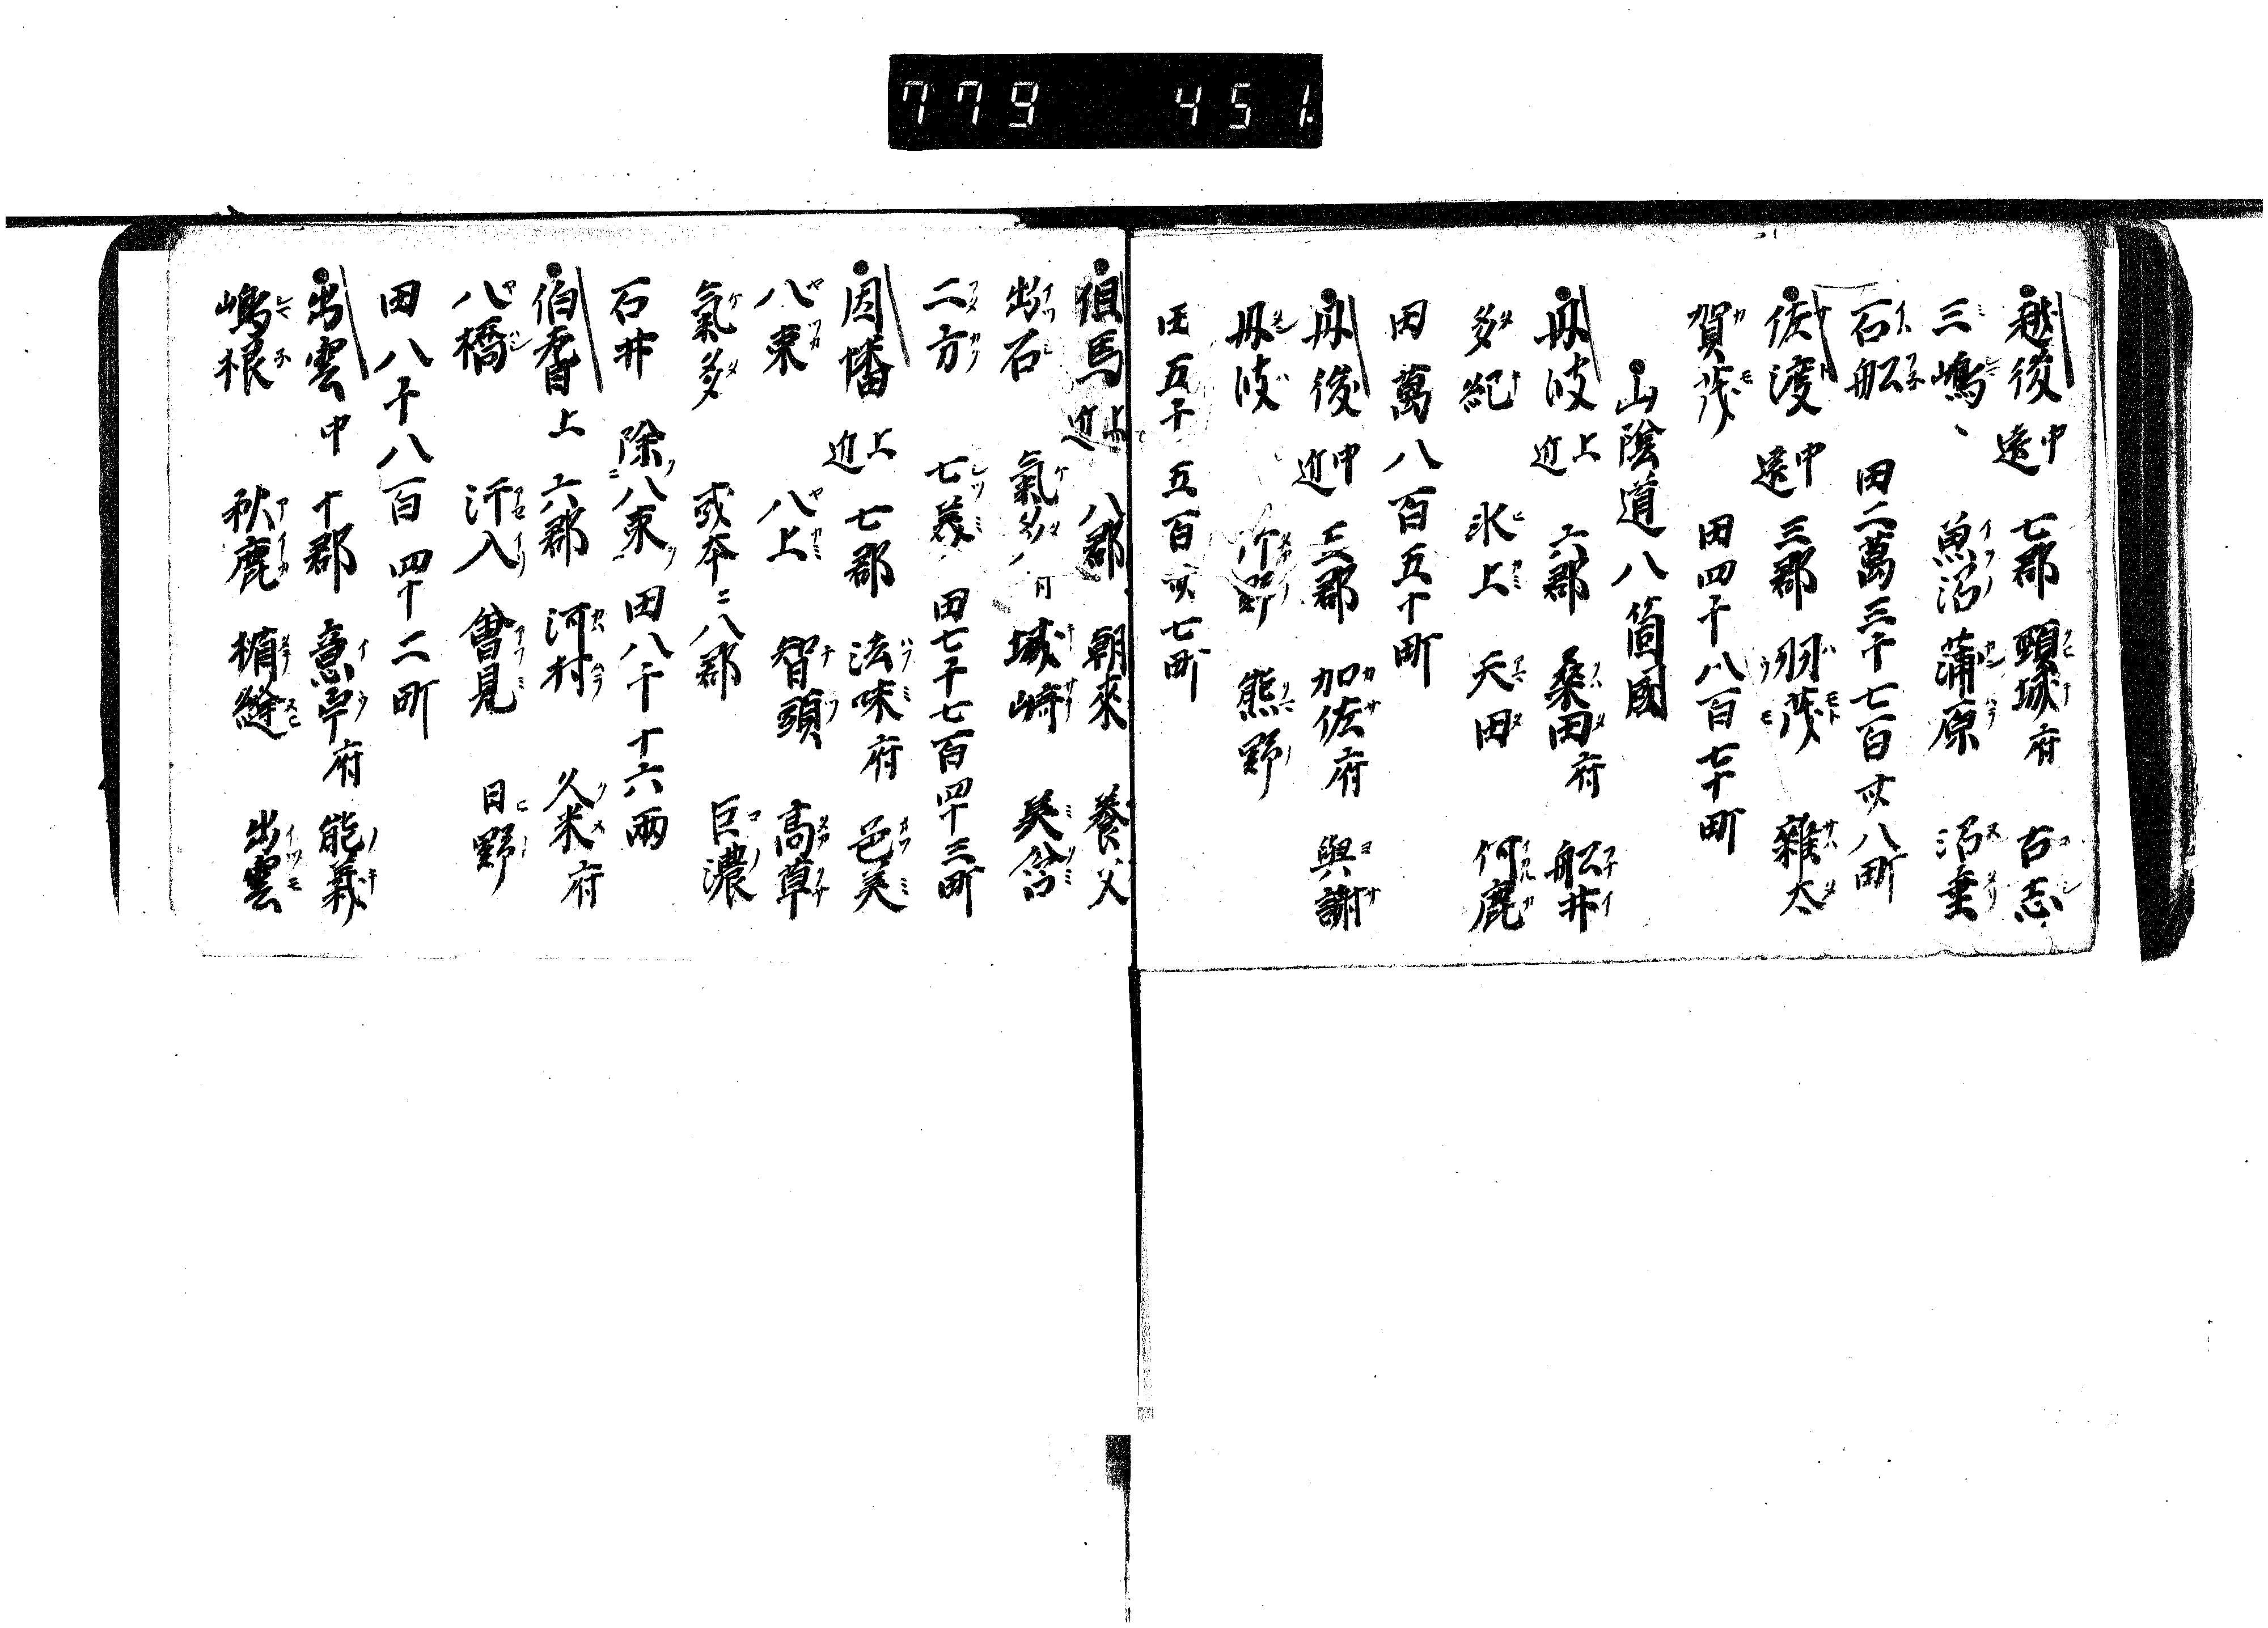 779 451.
越後 中遠 七郡 頸城府 古志
三嶋 魚沼 蒲原 沼垂
石舩 田二萬三千七百廿八町
佐渡 中遠 三郡 羽茂 雜太
賀茂 田四千八百七十町
山陰道八箇國
丹波 上近 六郡 桑田府 舩井
多紀 氷上 天田 何鹿
田萬八百五十町
丹後 中近 五郡 加佐府 與謝
丹波 竹野 熊野
田五千五百廿七町
但馬 上近 八郡 朝來 養父
出石 氣多府 城崎 美含
二方 七美 田七千七百四十三町
因幡 上近 七郡 法味府 邑美
八東 八上 智頭 髙草
氣多 或本ニ八郡 巨濃
石井 除八東 田八千十六兩
伯耆 上 六郡 河村 久米府
八橋 汗入 會見 日野
田八千八百四十二町
出雲 中 十郡 意宇府 能義
嶋根 秋鹿 楯縫 出雲